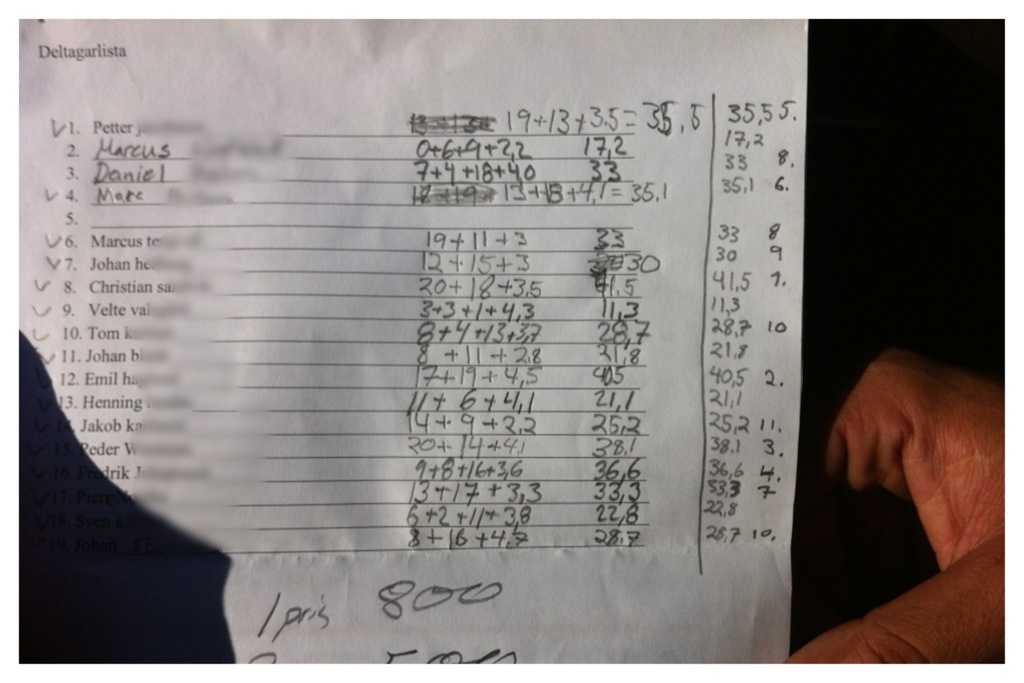 Deltagarlista
1. Petter 19+13+3.5=35,5 35,5 5.
2. Marcus 0+6+9+2,2 17,2 17,2
3. Daniel 7+4+18+4,0 33 33 8.
4. Marc 13+18+4,1=35.1 35,1 6.
5.
6. Marcus 19+11+3 33 33 8
7. Johan 12+15+3 30 30 9
8. Christian 20+18+3,5 41,5 41,5 1.
9. Velte 3+3+1+4,3 11,3 11,3
10. Tom 8+4+13+3,7 28,7 28,7 10
11. Johan 8 +11+2.8 21,8 21,8
12. Emil 17+19+4,5 40,5 40,5 2.
13. Henning 11+6+4,1 21,1 21,1
14. Jakob 14+9+2,2 25,2 25,2 11.
15. Peder 20+14+4,1 38.1 38.1 3.
16. Fredrik 9+8+16+3,6 36,6 36,6 4.
17. 13+17+3,3 33,3 33,3 7
18. Sven 6+2+11+3,8 22,8 22,8
19. Johan 8+16+4,7 28.7 28,7 10.
1 pris 800